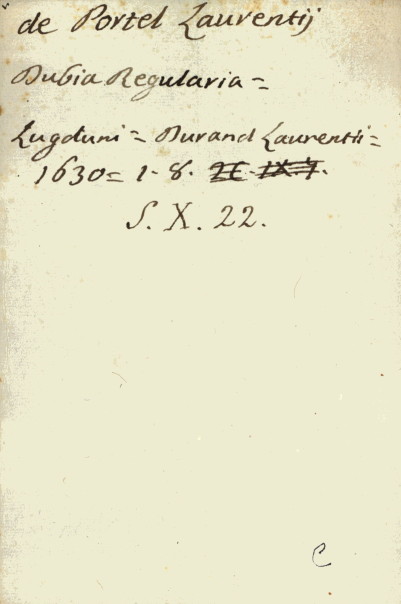 de Portel Laurentij
Dubia Regularia =
Lugduni = Durand Laurentii =
1630 = 1. 8.
S. X. 22.
C